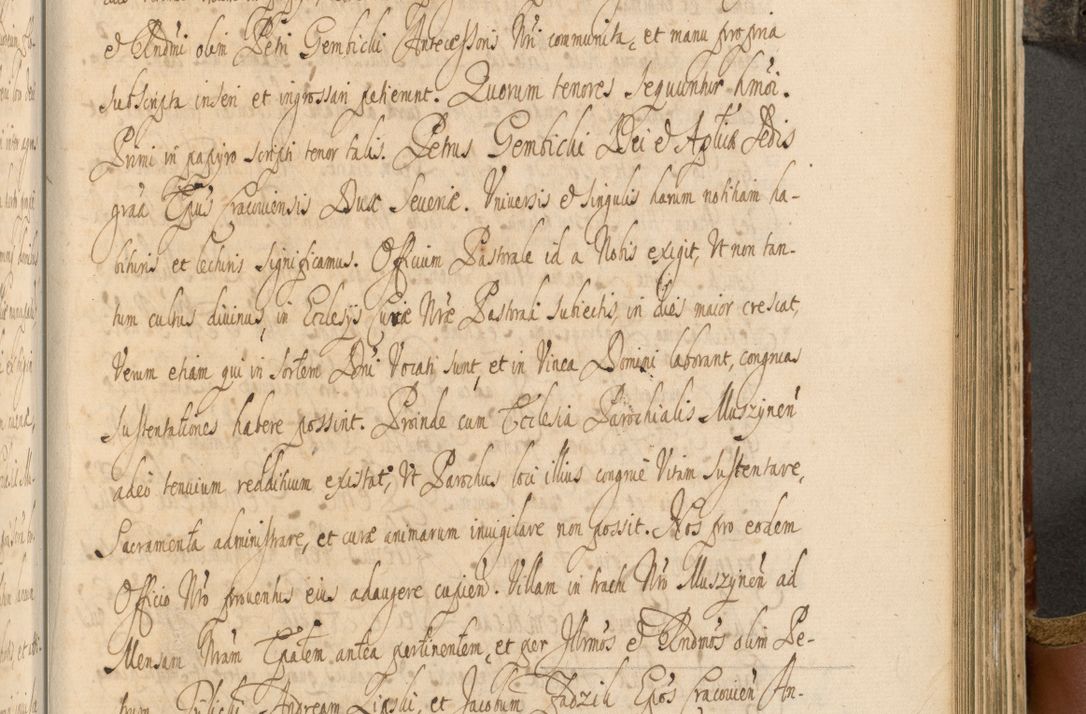 & Rndmi olim Petri Gembicki Antecessoris Nri communita, et manu propria
subscripta inseri et ingrossari petierunt. Quorum tenores sequuntur hmoi.
Primi in papyro scripti tenor talis. Petrus Gembicki Dei & Aplicae Sedis
graa Epus Cracoviensis Dux Severiae. Universis & singulis harum notitiam ha-
bituris et lecturis significamus. Officium Pastorale id a Nobis exigit, Ut non tan-
tum cultus divinus, in Ecclesys Curae Nrae Pastorali subiectis, in dies maior crescat,
Verum etiam qui in sortem Dni Vocati sunt, et in Vinea Domini laborant, congruas
sustentationes habere possint. Proinde cum Ecclesia Parochialis Muszynen
adeo tenuium reddituum existat, Ut Parochus loci illius congrue Vitam sustentare,
Sacramenta administrare, et curae animarum invigilare non possit. Nos pro eodem
Officio Nro proventus eius adaugere cupien. Villam in tractu Nro Muszynen ad
Mensam Nram Epalem antea pertinentem, et per Illrmos & Rndmos olim Pe-
trum Tylicki, Andream Lipski, et Jacobum Zadzik Epos Cracovien An-